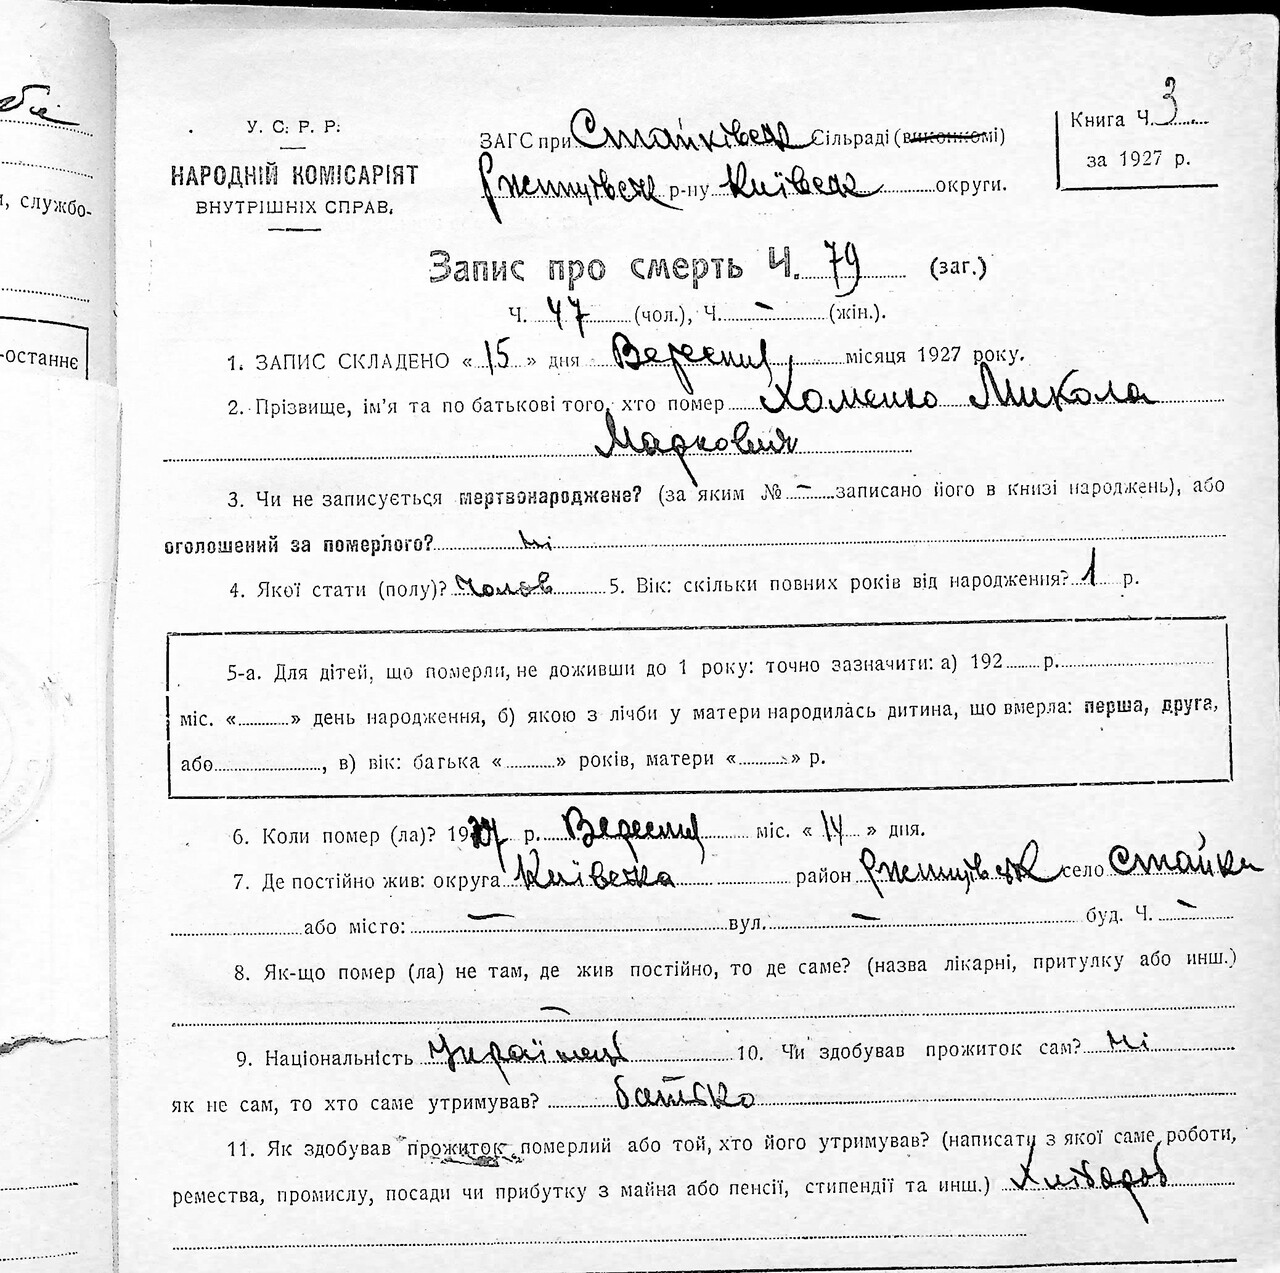 У. С. Р. Р.
НАРОДНІЙ КОМІСАРІЯТ
ВНУТРІШНІХ СПРАВ.
ЗАГС при Стайківськ Сільраді (виконкомі)
Ржищівськ р-ну Київськ округи.
Книга Ч. 3
за 1927 р.
Запис про смерть Ч. 79 (заг.)
Ч. 47 (чол.), Ч. – (жін.).
1. ЗАПИС СКЛАДЕНО « 15 » дня Вересня місяця 1927 року.
2. Прізвище, ім’я та по батькові того, хто помер Хоменко Микола
Маркович
3. Чи не записується мертвонароджене? (за яким № – записано його в книзі народжень), або
оголошений за померлого? ні
4. Якої стати (полу)? чолов 5. Вік: скільки повних років від народження? 1 р.
5-а. Для дітей, що померли, не доживши до 1 року: точно зазначити: а) 192 р.
міс. « » день народження, б) якою з лічби у матери народилась дитина, що вмерла: перша, друга,
або , в) вік: батька « » років, матери « » р.
6. Коли помер (ла)? 1927 р. Вересня міс. « 14 » дня.
7. Де постійно жив: округа Київська район Ржищівськ село Стайки
або місто: – вул. – буд. Ч. –
8. Як-що помер (ла) не там, де жив постійно, то де саме? (назва лікарні, притулку або инш.)
–
9. Національність Українець 10. Чи здобував прожиток сам? ні
як не сам, то хто саме утримував? батько
11. Як здобував прожиток померлий або той, хто його утримував? (написати з якої саме роботи,
ремества, промислу, посади чи прибутку з майна або пенсії, стипендії та инш.) Хлібороб
, службо-
-останнє